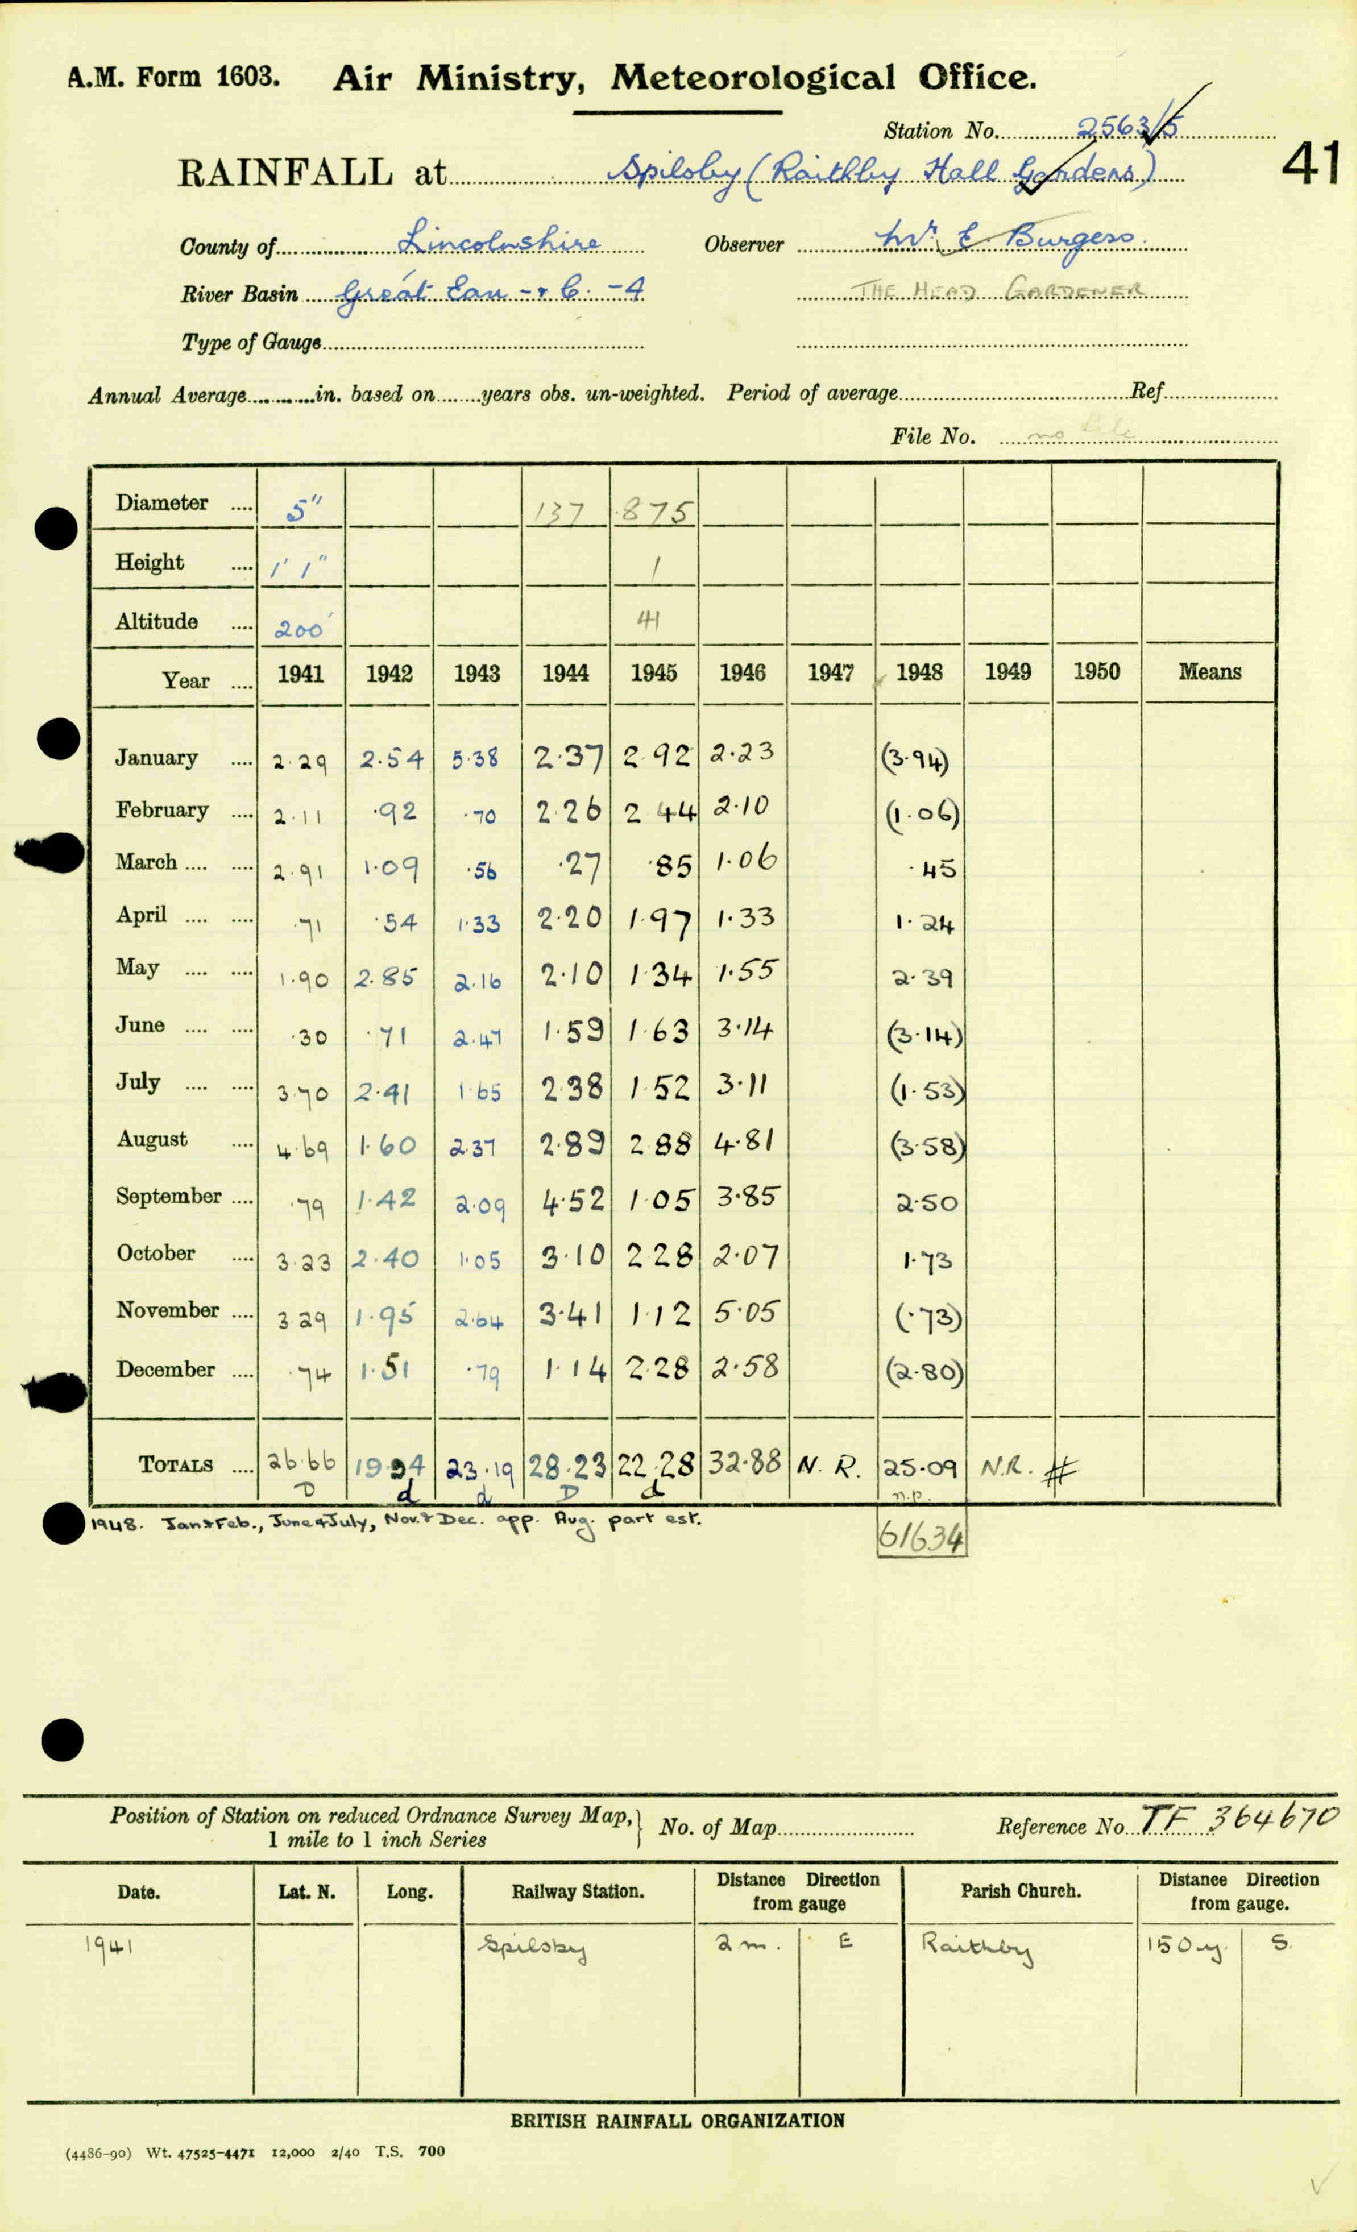 A.M. Form 1603. Air Ministry, Meteorological Office.
Station No. 2563/5
41
RAINFALL at Spilsby (Raithby Hall Gardens)
County of Lincolnshire Observer Mr E Burgess.
River Basin Great Eau - & C. - 4 THE HEAD GARDENER
Type of Gauge
Annual Average in. based on years obs. un-weighted. Period of average Ref
File No. no file
Diameter 5" 137 .875
Height 1' 1" 1
Altitude 200' 41
Year 1941 1942 1943 1944 1945 1946 1947 1948 1949 1950 Means
January 2.29 2.54 5.38 2.37 2.92 2.23 (3.94)
February 2.11 .92 .70 2.26 2.44 2.10 (1.06)
March 2.91 1.09 .56 .27 .85 1.06 .45
April .71 .54 1.33 2.20 1.97 1.33 1.24
May 1.90 2.85 2.16 2.10 1.34 1.55 2.39
June .30 .71 2.47 1.59 1.63 3.14 (3.14)
July 3.70 2.41 1.65 2.38 1.52 3.11 (1.53)
August 4.69 1.60 2.37 2.89 2.88 4.81 (3.58)
September .79 1.42 2.09 4.52 1.05 3.85 2.50
October 3.23 2.40 1.05 3.10 2.28 2.07 1.73
November 3.29 1.95 2.64 3.41 1.12 5.05 (.73)
December .74 1.51 .79 1.14 2.28 2.58 (2.80)
TOTALS 26.66 19.94 23.19 28.23 22.28 32.88 N.R. 25.09 N.R. #
D d d D d n.p.
1948. Jan & Feb., June & July, Nov. & Dec. app. Aug. part est.
61634
Position of Station on reduced Ordnance Survey Map, 1 mile to 1 inch Series } No. of Map Reference No. TF 364670
Date. Lat. N. Long. Railway Station. Distance Direction from gauge Parish Church. Distance Direction from gauge.
1941 Spilsby 2 m. E Raithby 150 y. S.
BRITISH RAINFALL ORGANIZATION
(4486-90) Wt. 47525-4471 12,000 2/40 T.S. 700